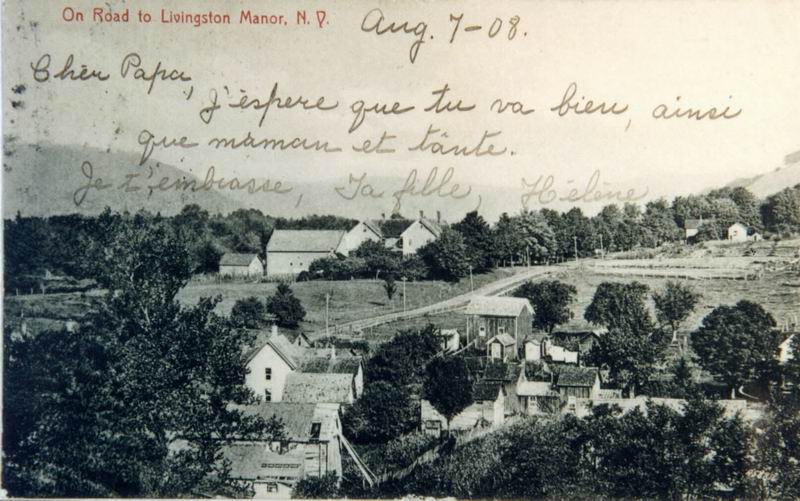 On Road to Livingston Manor, N. Y.
Aug. 7-08.
Chèr Papa,
J'éspere que tu va bien, ainsi
que maman et tânte.
Je t'embrasse, Ta fille, Hèlène